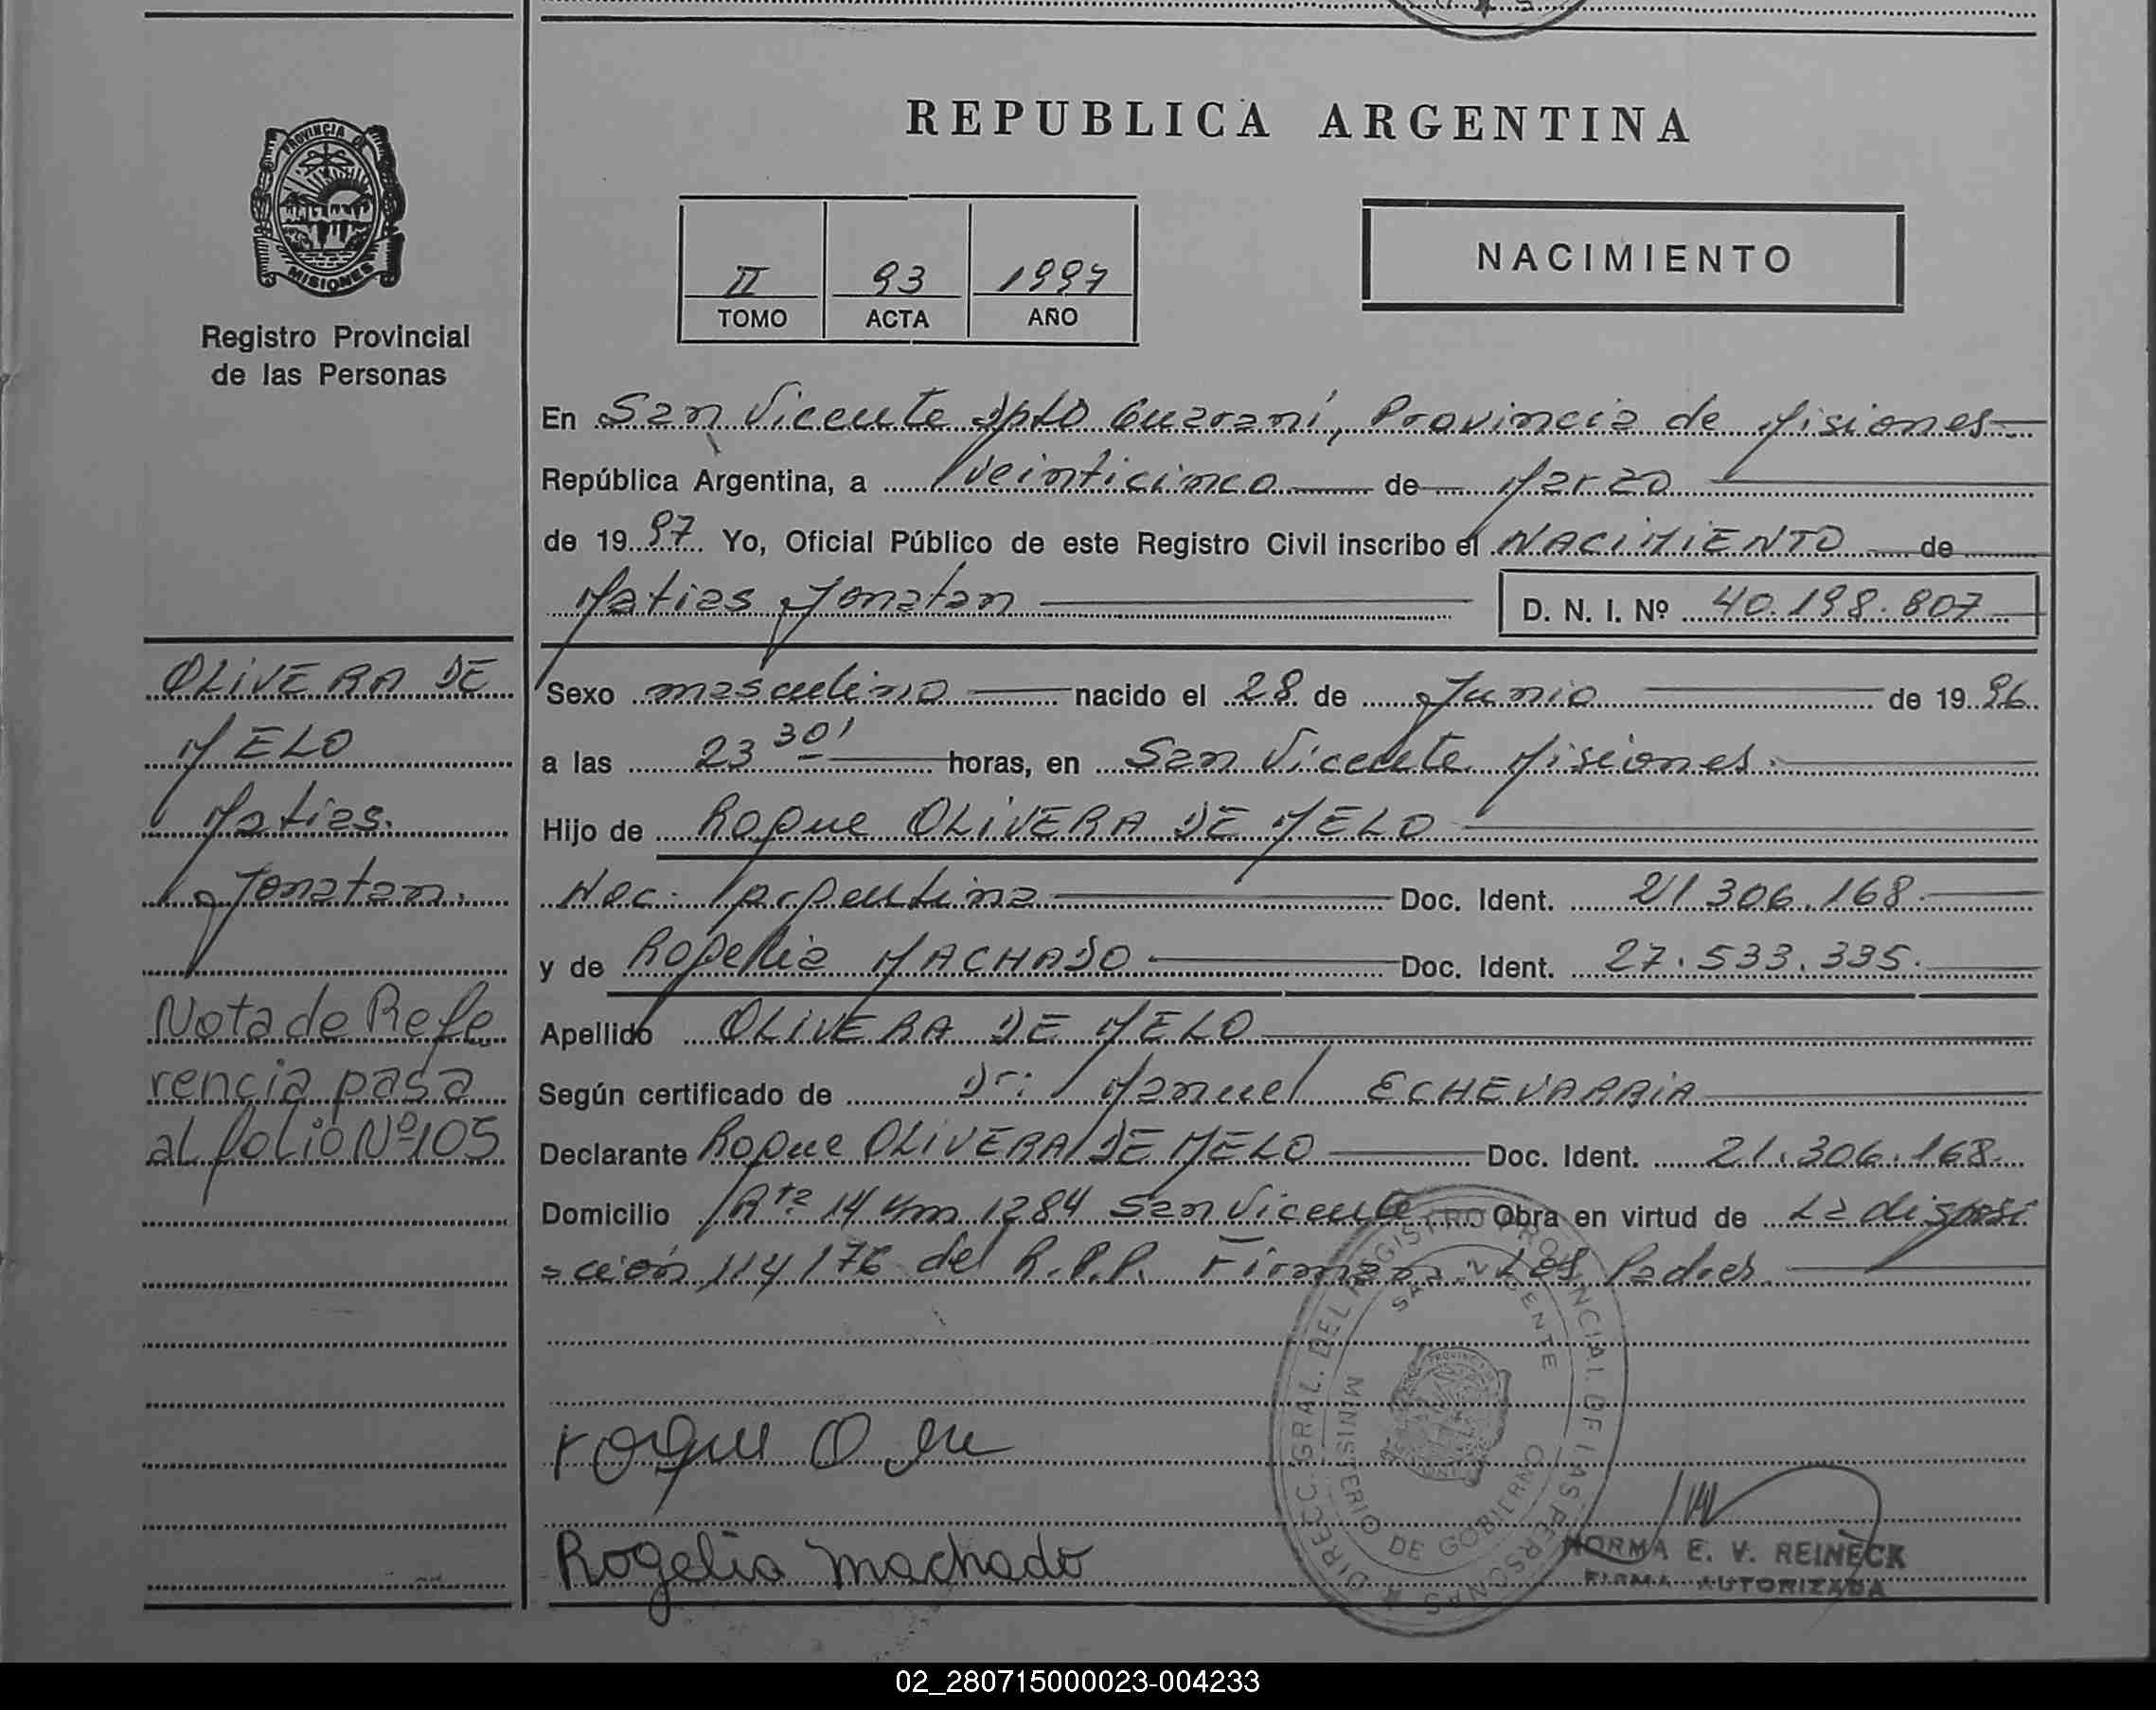 REPUBLICA ARGENTINA
PROVINCIA DE
MISIONES
Registro Provincial
de las Personas
II 93 1997
TOMO ACTA AÑO
NACIMIENTO
En San Vicente Dpto Guaraní, Provincia de Misiones
República Argentina, a Veinticinco de Marzo
de 1997 Yo, Oficial Público de este Registro Civil inscribo el NACIMIENTO de
Matias Jonatan D. N. I. Nº 40.198.807
OLIVERA DE
MELO
Matias
Jonatan.
Nota de Refe
rencia pasa
al folio Nº 105
Sexo masculino nacido el 28 de Junio de 1996
a las 23 30' horas, en San Vicente Misiones.
Hijo de Roque OLIVERA DE MELO
Nac. Argentina Doc. Ident. 21.306.168
y de Rogelia MACHADO Doc. Ident. 27.533.335.
Apellido OLIVERA DE MELO
Según certificado de Dr: Manuel ECHEVARRIA
Declarante Roque OLIVERA DE MELO Doc. Ident. 21.306.168.
Domicilio Rta 14 Km 1284 San Vicente Obra en virtud de La disposi
ción 114/76 del R.P.P. Firman Los Padres
roque O
Rogelia machado
DIRECC. GRAL. DEL REGISTRO PROVINCIAL DE LAS PERSONAS
SAN VICENTE
MINISTERIO DE GOBIERNO
NORMA E. V. REINECK
FIRMA AUTORIZADA
02_280715000023-004233